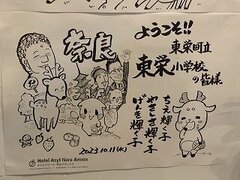 奈良
ようこそ!!
東栄町立
東栄小学校
の皆様
ちえ輝く子
やさしさ輝く子
げんき輝く子
2023.10.11(水)
Hotel Asyl Nara Annex